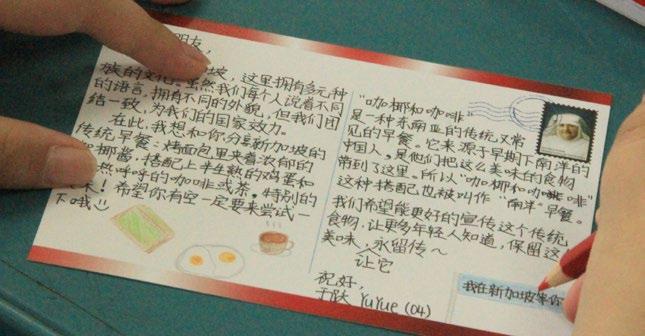 朋友,
坡, 这里拥有多元种
族的文化。虽然我们每个人说着不同
的语言, 拥有不同的外貌, 但我们团
结一致, 为我们的国家效力。
在此, 我想和你分享新加坡的
传统早餐: 烤面包里夹着浓郁的
椰酱, 搭配上半生熟的鸡蛋和
热呼呼的咖啡或茶。特别的
! 希望你有空一定要来尝试一
下哦
“咖椰和咖啡”
是一种东南亚的传统又常
见的早餐。它来源于早期下南洋的
中国人, 是他们把这么美味的食物
带到了这里。所以“咖椰和咖啡”
这种搭配也被叫作“南洋”早餐。
我们希望能更好的宣传这个传统
食物, 让更多年轻人知道, 保留这
美味, 永留传~
让它
祝好,
于跃 YuYue (04)
我在新加坡等你